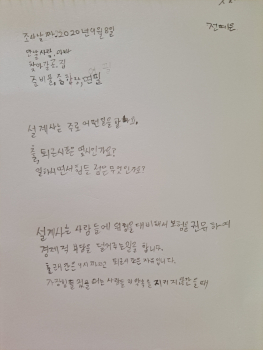 전예은
조사날짜: 2020년 9월 8일
만날사람: 아빠
찾아갈곳: 집
준비물: 종합장, 연필
설계사는 주로 어떤일을 할까요?
출, 퇴근시간은 몇시인가요?
일하시면서 힘든 점은 무엇인가요?
설계사는 사람들에 위험을 대비해서 보험을 권유하여
경제적 부담을 덜어주는일을 합니다.
출근은 9시이며 퇴근은 자유입니다.
가장힘들었을 때는 사람들이 약속을 지키지 않았을 때